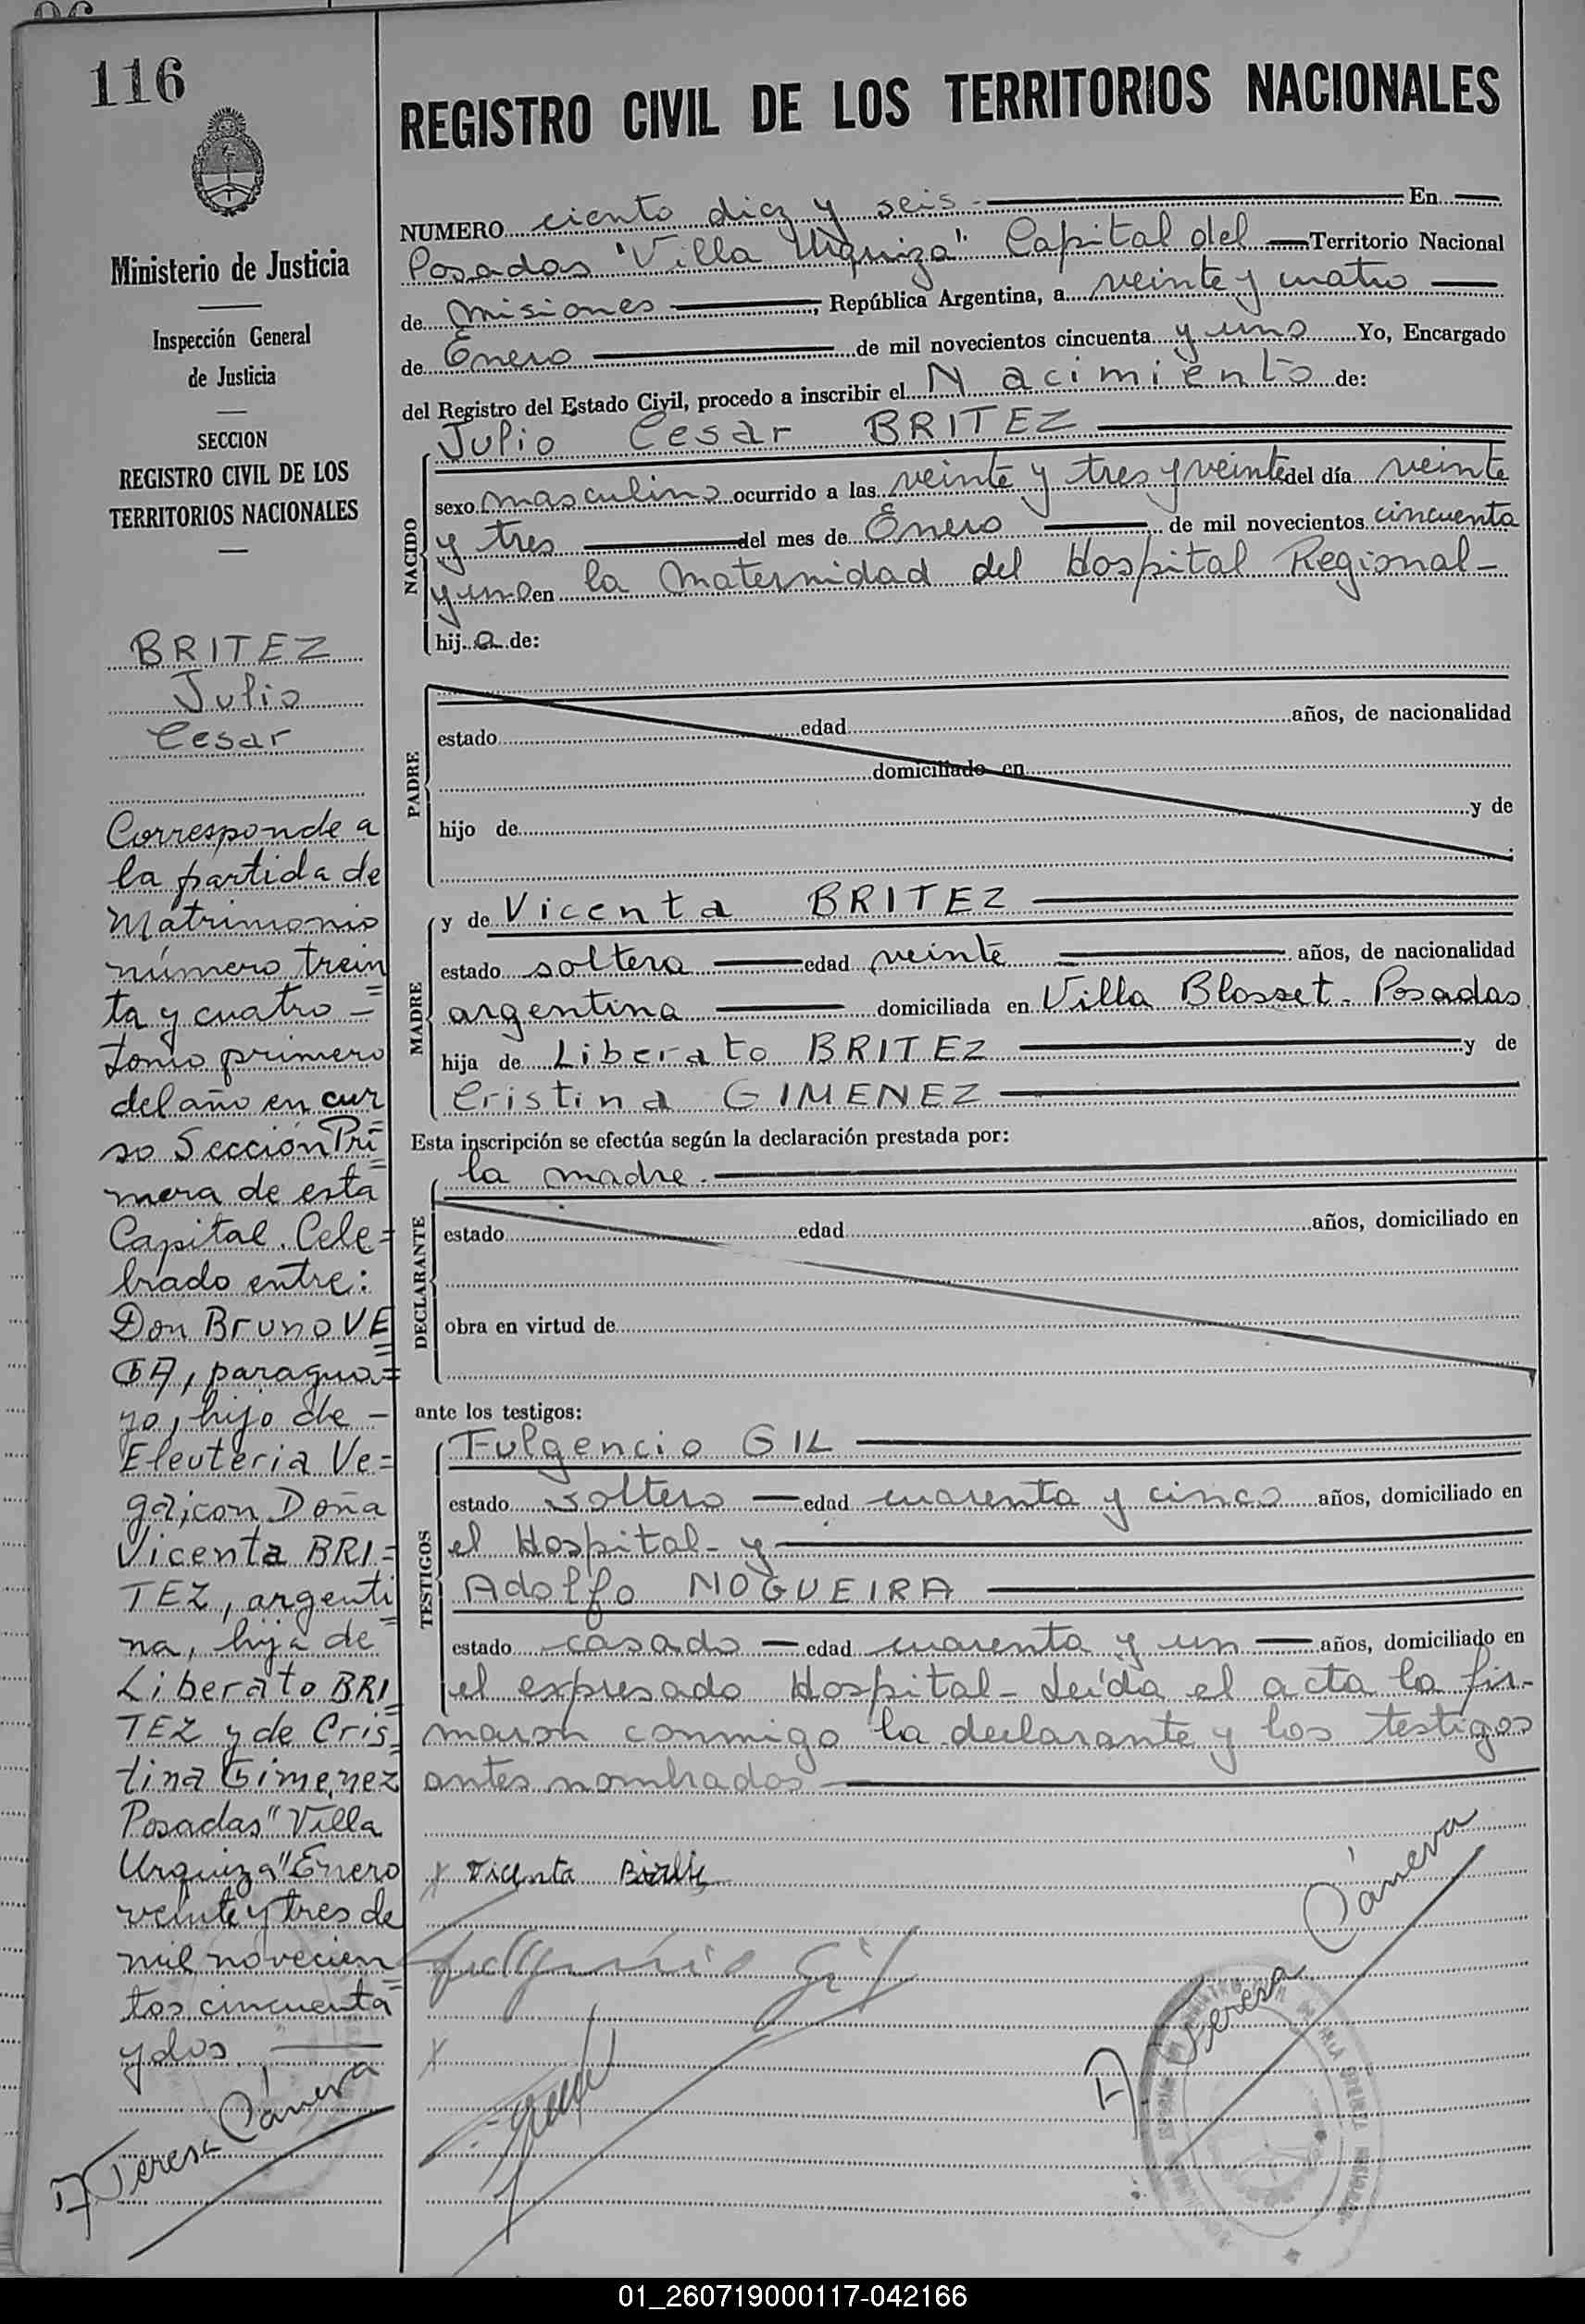 116
Ministerio de Justicia
Inspección General
de Justicia
SECCION
REGISTRO CIVIL DE LOS
TERRITORIOS NACIONALES
BRITEZ
Julio
Cesar
Corresponde a
la partida de
Matrimonio
número trein
ta y cuatro =
tomo primero
del año en cur
so Sección Pri=
mera de esta
Capital. Cele=
brado entre:
Don Bruno VE=
GA, paragua=
yo, hijo de -
Eleuteria Ve=
ga; con Doña
Vicenta BRI=
TEZ, argenti=
na, hija de
Liberato BRI=
TEZ y de Cris=
tina Gimenez
Posadas "Villa
Urquiza" Enero
veinte y tres de
mil novecien=
tos cincuenta
y dos.
A Teresa Cáneva
REGISTRO CIVIL DE LOS TERRITORIOS NACIONALES
NUMERO ciento diez y seis - En
Posadas "Villa Urquiza" Capital del Territorio Nacional
de Misiones, República Argentina, a veinte y cuatro
de Enero de mil novecientos cincuenta y uno Yo, Encargado
del Registro del Estado Civil, procedo a inscribir el Nacimiento de:
NACIDO
Julio Cesar BRITEZ
sexo masculino ocurrido a las veinte y tres y veinte del día veinte
y tres del mes de Enero de mil novecientos cincuenta
y uno en la Maternidad del Hospital Regional -
hij a de:
PADRE
estado edad años, de nacionalidad
domiciliado en
hijo de y de
MADRE
y de Vicenta BRITEZ
estado soltera edad veinte años, de nacionalidad
argentina domiciliada en Villa Blosset - Posadas
hija de Liberato BRITEZ y de
Cristina GIMENEZ
Esta inscripción se efectúa según la declaración prestada por:
DECLARANTE
la madre.
estado edad años, domiciliado en
obra en virtud de
ante los testigos:
TESTIGOS
Fulgencio GIL
estado soltero edad cuarenta y cinco años, domiciliado en
el Hospital - y
Adolfo NOGUEIRA
estado casado edad cuarenta y un años, domiciliado en
el expresado Hospital - Leída el acta la fir-
maron conmigo la declarante y los testigos
antes nombrados
x Vicenta
Fulgencio Gil
x
A Teresa Cáneva
01_260719000117-042166